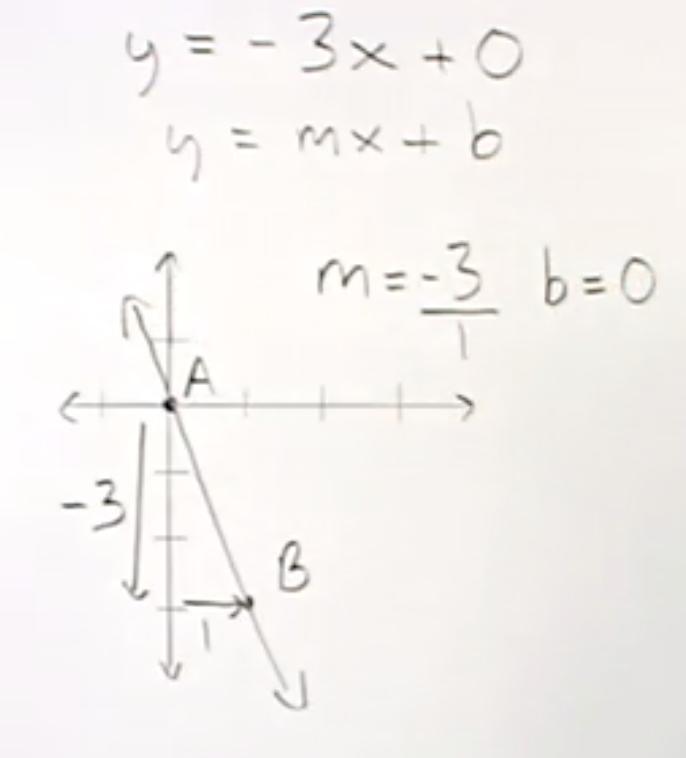 y = -3x + 0
y = mx + b
m = -3/1 b = 0
A
-3
B
1